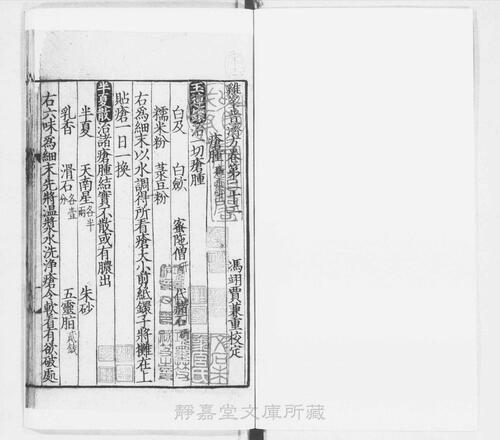 雞峯普濟方卷第二十二
馮翊賈兼重校定
瘡腫
治一切瘡腫
白及 白蘞 蜜陁僧 代赭石
糯米粉 菉豆粉
右為細末以水調得所看瘡大小剪紙鐶子將攤在上
貼瘡一日一換
半夏散治諸瘡腫結實不散或有膿出
半夏 天南星各半兩 朱砂
乳香 滑石各壹分 五靈脂貳錢
右六味為細末先將溫漿水洗淨瘡令軟看有欲破處
靜嘉堂文庫所藏